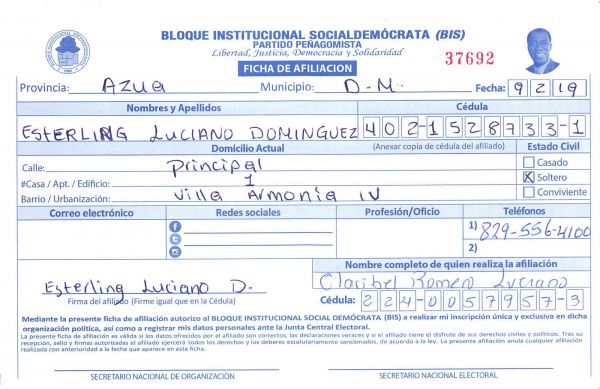 BLOQUE INSTITUCIONAL SOCIALDEMÓCRATA (BIS)
PARTIDO PEÑAGOMISTA
Libertad, Justicia, Democracia y Solidaridad
37692
FICHA DE AFILIACION
Provincia: Azua Municipio: D.M. Fecha: 9 2 19
Nombres y Apellidos Cédula
ESTERLING LUCIANO DOMINGUEZ 402-1528733-1
Domicilio Actual (Anexar copia de cédula del afiliado) Estado Civil
Calle: Principal Casado
#Casa / Apt. / Edificio: 1 X Soltero
Barrio / Urbanización: Villa Armonia IV Conviviente
Correo electrónico Redes sociales Profesión/Oficio Teléfonos
1) 829-556-4100
2)
Nombre completo de quien realiza la afiliación
Esterling Luciano D. Claribel Romero Luciano
Firma del afiliado (Firme igual que en la Cédula) Cédula: 224-0057957-3
Mediante la presente ficha de afiliación autorizo al BLOQUE INSTITUCIONAL SOCIAL DEMÓCRATA (BIS) a realizar mi inscripción única y exclusiva en dicha
organización política, así como a registrar mis datos personales ante la Junta Central Electoral.
La presente ficha de afiliación es valida si los datos ofrecidos por el afiliado son correctos, las declaraciones veraces y si el afiliado tiene el disfrute de sus derechos civiles y politicos. Tras su
recepción, sello y firmas autorizadas el afiliado ejercerá todos los derechos y los deberes estatutariamente sancionados, de acuerdo a la ley. La presente afiliación anula cualquier afiliación
realizada con anterioridad a la fecha que aparece en esta ficha.
SECRETARIO NACIONAL DE ORGANIZACIÓN SECRETARIO NACIONAL ELECTORAL